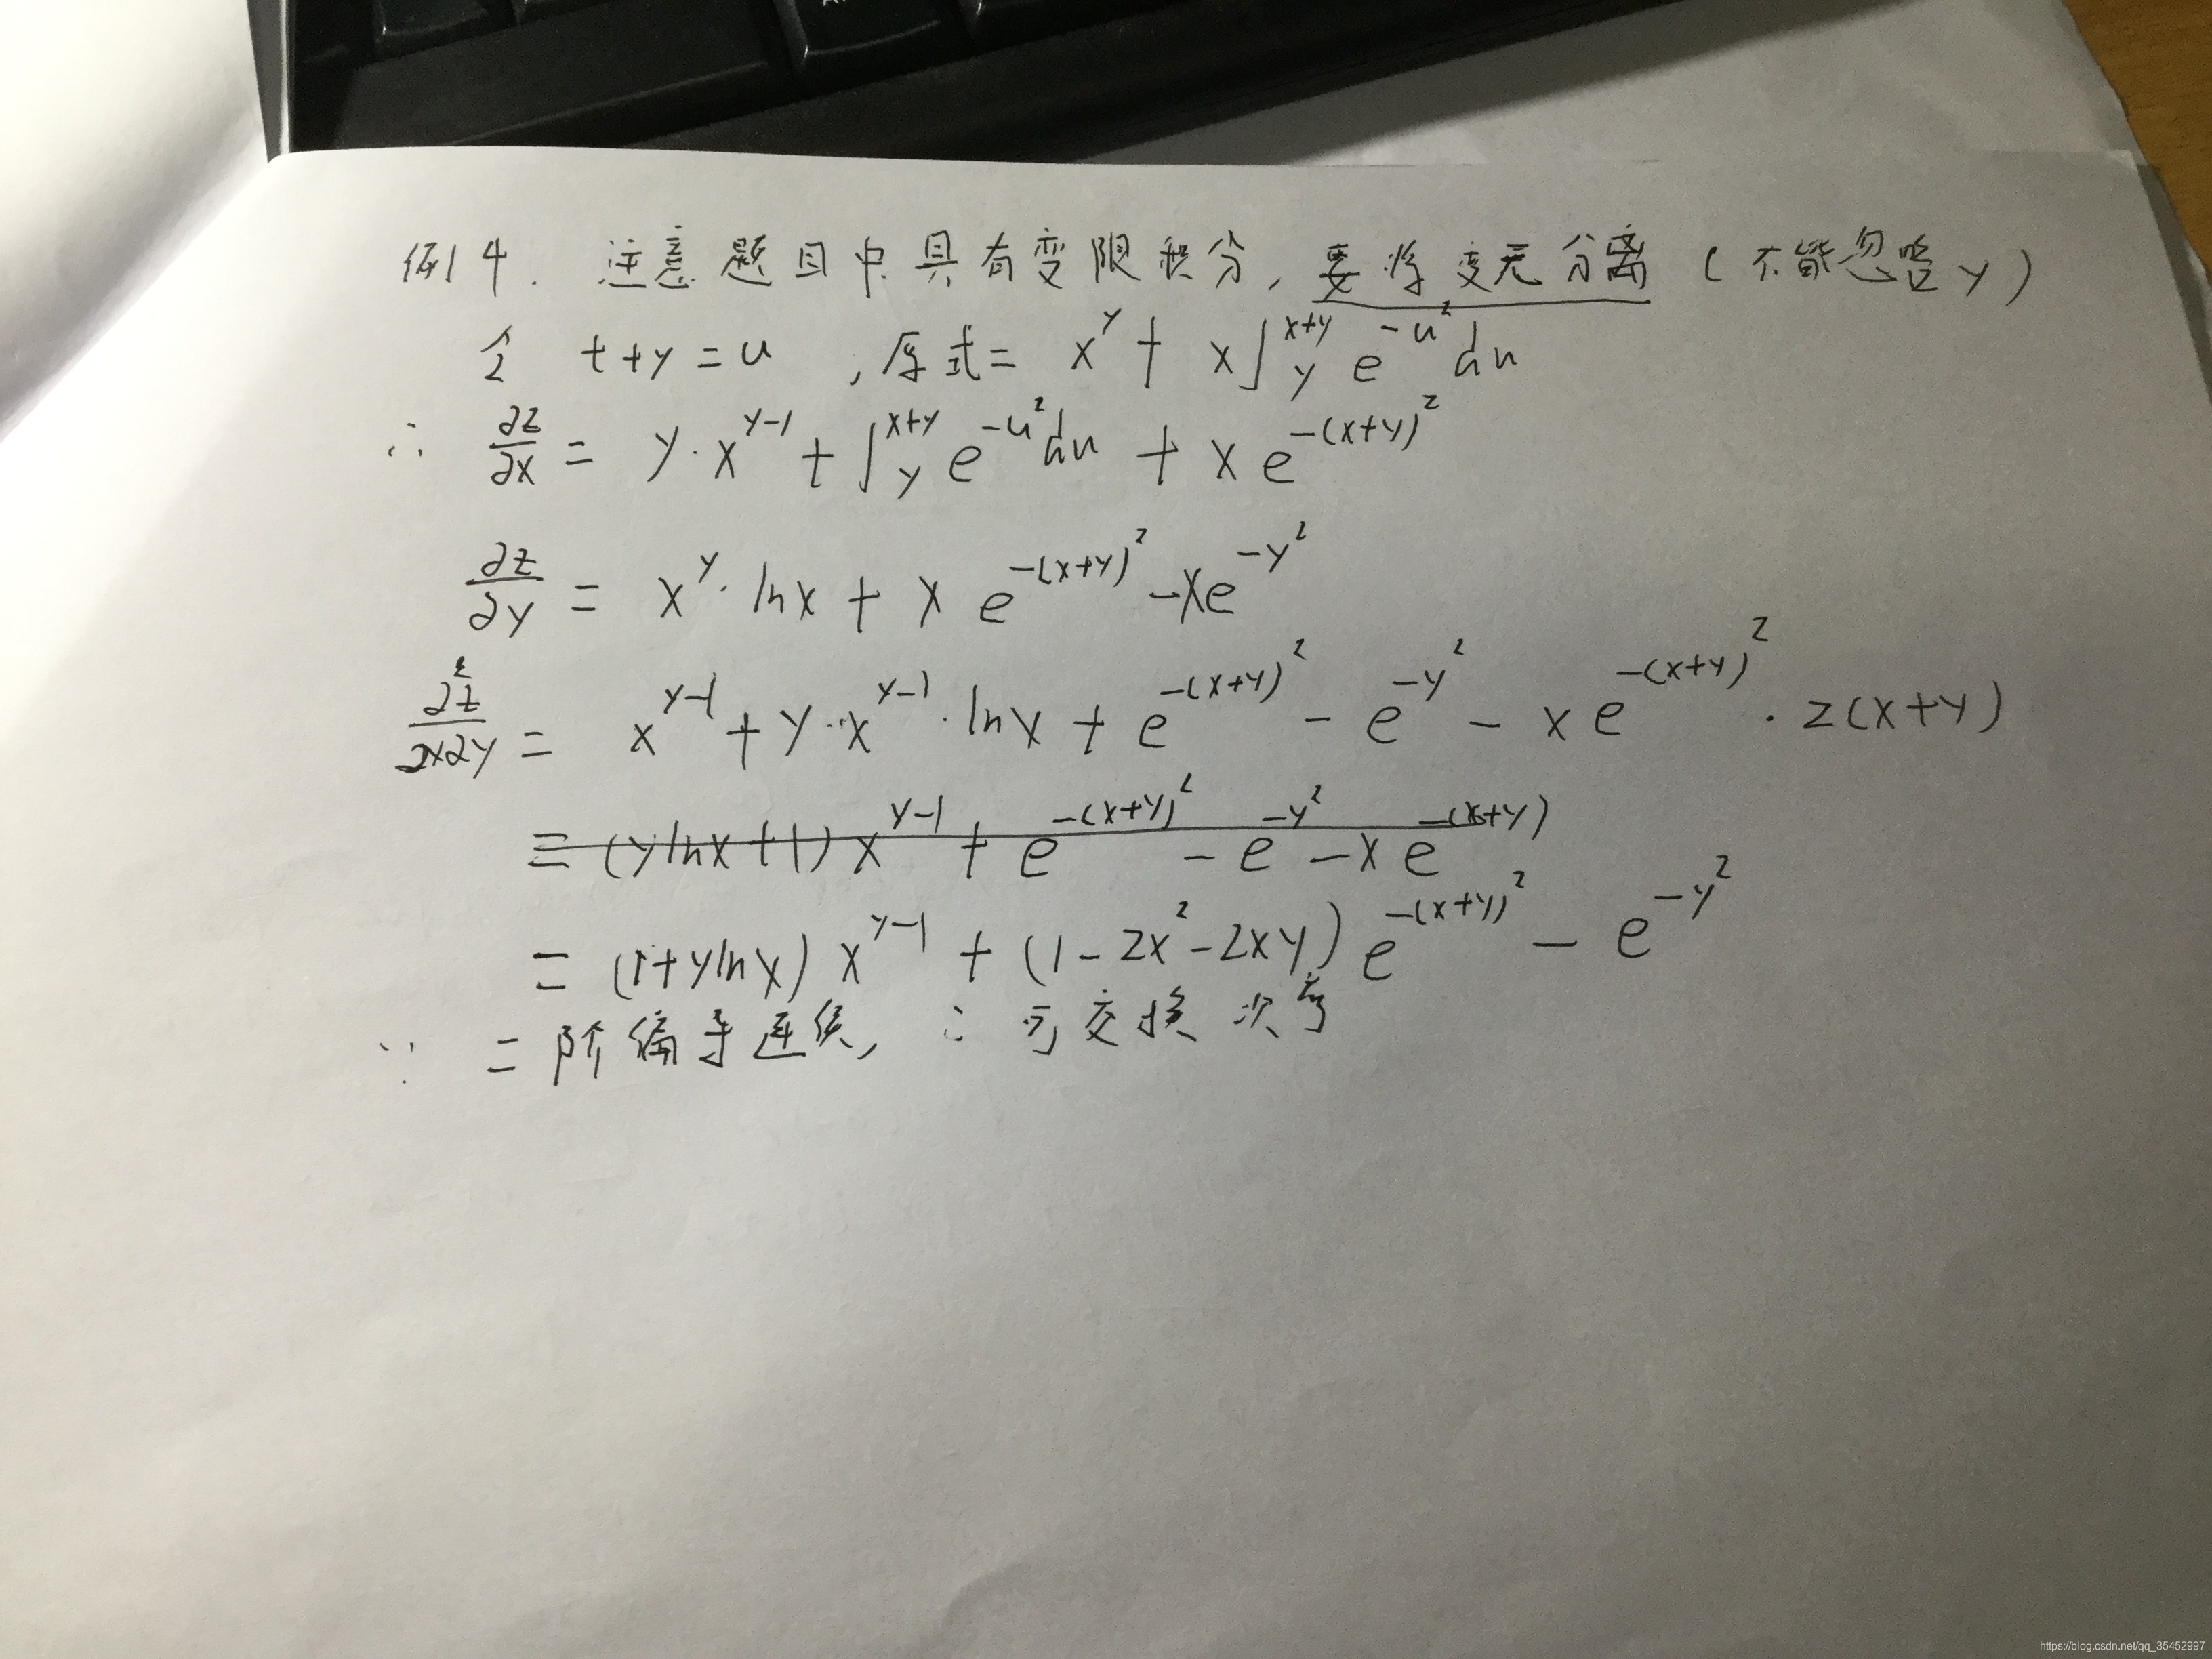 例4. 注意题目中具有变限积分, 要将变元分离 (不能忽略y)
令 t+y=u ,原式= x^y + x∫_y^{x+y} e^{-u²}du
∴ ∂z/∂x = y·x^{y-1} + ∫_y^{x+y} e^{-u²}du + xe^{-(x+y)²}
∂z/∂y = x^y·lnx + x e^{-(x+y)²} -xe^{-y²}
∂²z/∂x∂y = x^{y-1} + y·x^{y-1}·lnx + e^{-(x+y)²} - e^{-y²} - xe^{-(x+y)²}·2(x+y)
= (ylnx+1) x^{y-1} + e^{-(x+y)²} - e^{-y²} - x e^{-(x+y)}
= (1+ylnx) x^{y-1} + (1-2x²-2xy) e^{-(x+y)²} - e^{-y²}
∵ 二阶偏导连续, ∴ 可交换次序
https://blog.csdn.net/qq_35452997